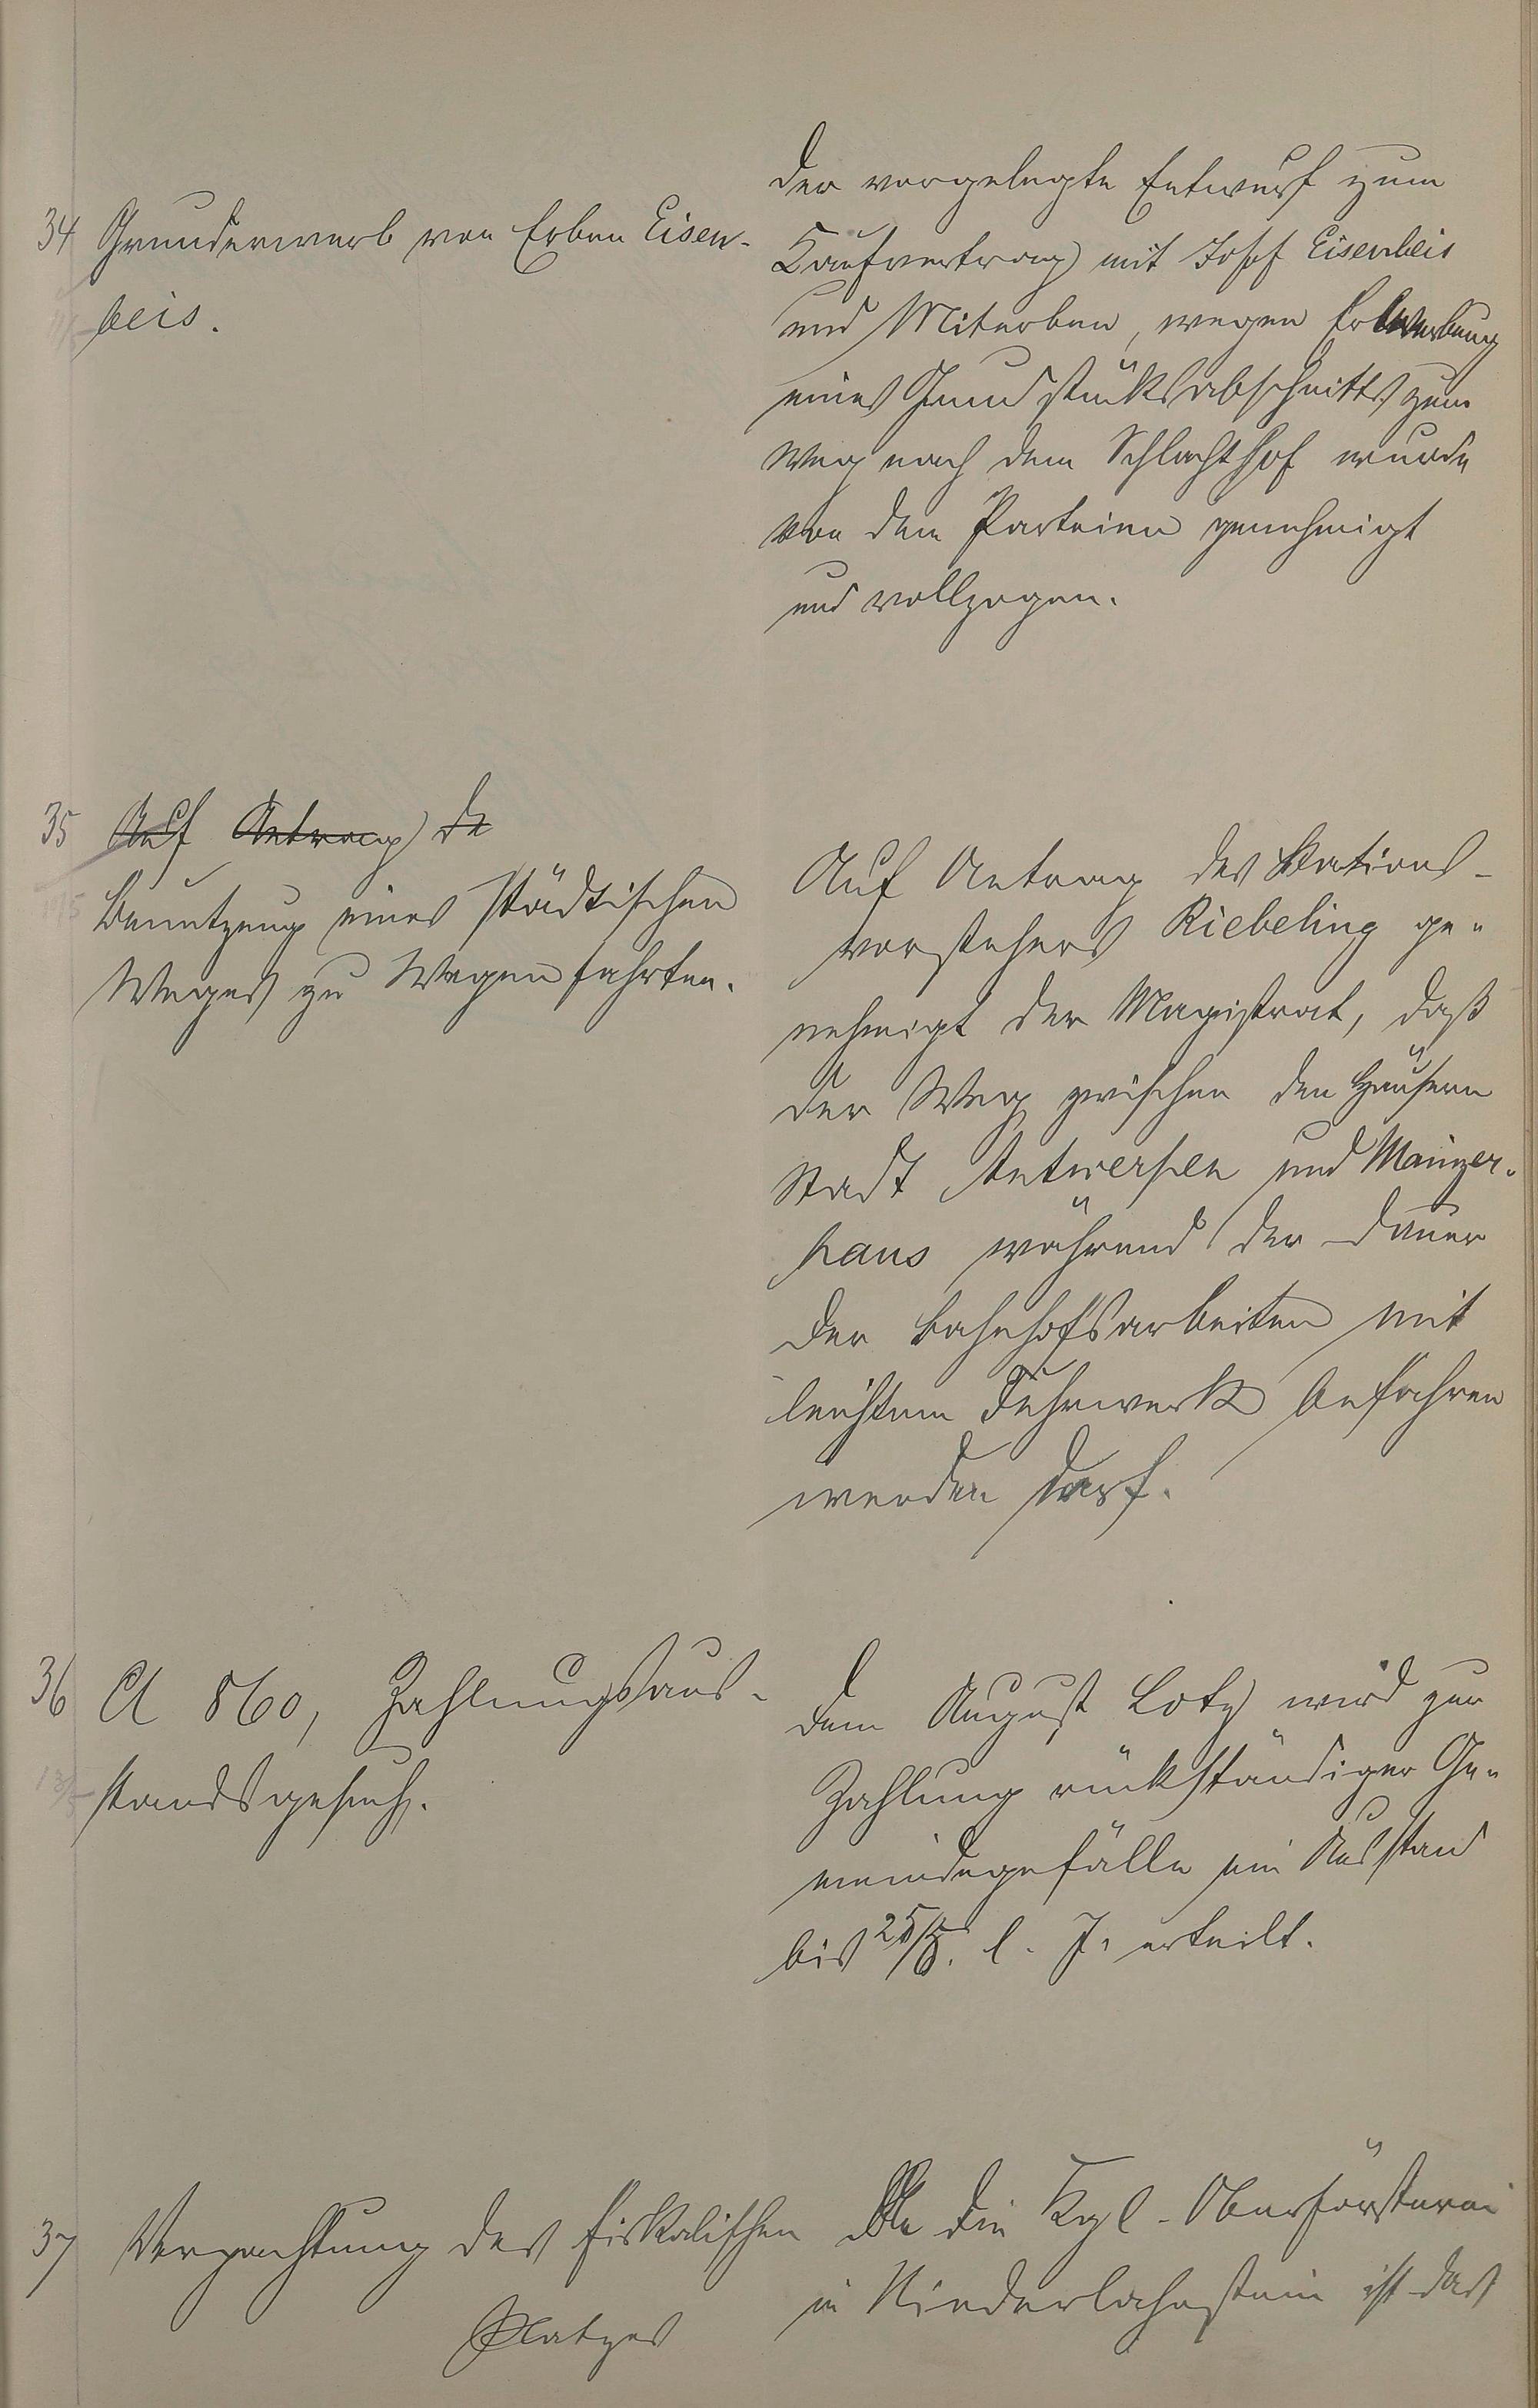 34 Grunderwerb von Erben Eisen-
beis.
Der vorgelegte Entwurf zum
Kaufvertrag mit Josef Eisenbeis
und Miterben, wegen Erwerbung
eines Grundstücksabschnitts zum
Weg nach dem Schlachthof wurde
von den Parteien genehmigt
und vollzogen.
35 Auf Antrag de
Benutzung eines städtischen
Weges zu Wagenfahrten.
Auf Antrag des Stations-
vorstehers Riebeling ge-
nehmigt der Magistrat, daß
der Weg zwischen den Häusern
Stadt Antwerpen und Mainzer-
haus während der Dauer
der Bahnhofsarbeiten mit
leichtem Fuhrwerk befahren
werden darf.
36 A 860, Zahlungsaus-
standsgesuch.
Dem August Lotz wird zur
Zahlung rückständiger Ge-
meindegefälle ein Ausstand
bis 25/5. l. J. erteilt.
37 Verpachtung des fiskalischen
Platzes
die Kgl. Oberförsterei
in Niederlahnstein ist das